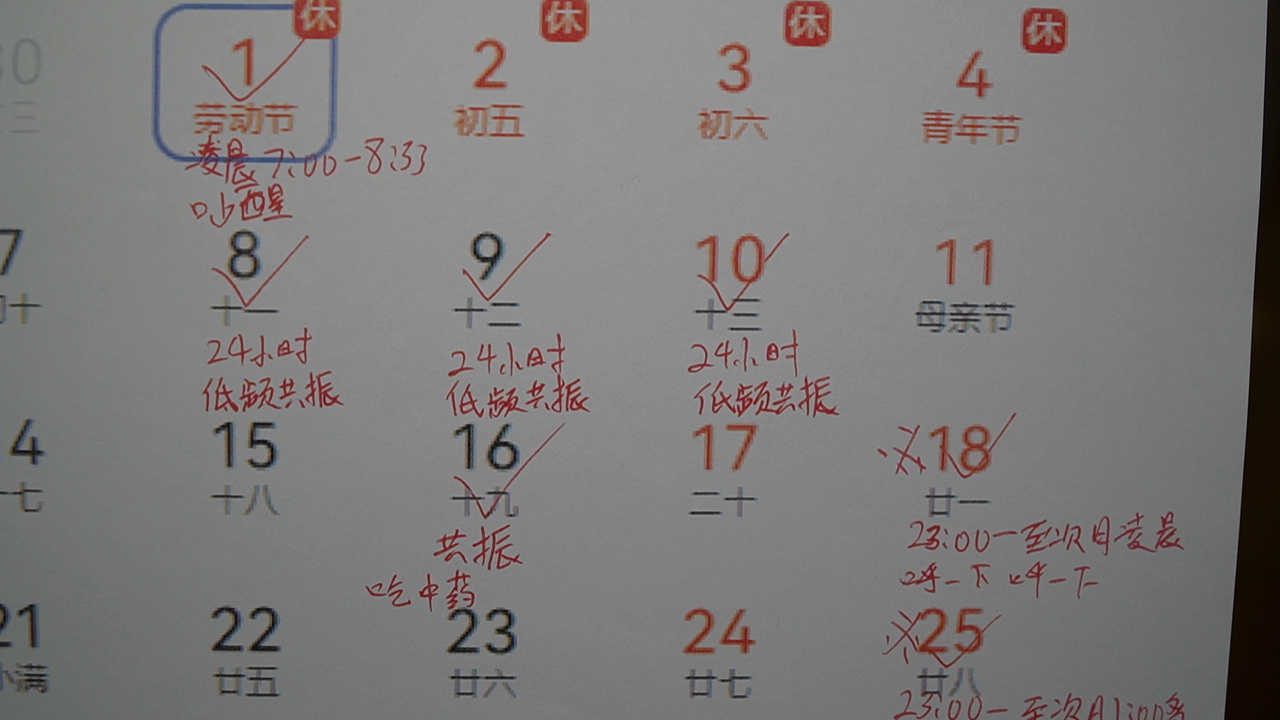 休 休 休 休
30 1 2 3 4
三 劳动节 初五 初六 青年节
凌晨7:00-8:33
吵醒
7 8 9 10 11
初十 十一 十二 十三 母亲节
24小时 24小时 24小时
低频共振 低频共振 低频共振
14 15 16 17 ※18
十七 十八 十九 二十 廿一
共振 23:00一至次日凌晨
吃中药 呼一下呼一下
21 22 23 24 ※25
小满 廿五 廿六 廿七 廿八
23:00一至次日1:00